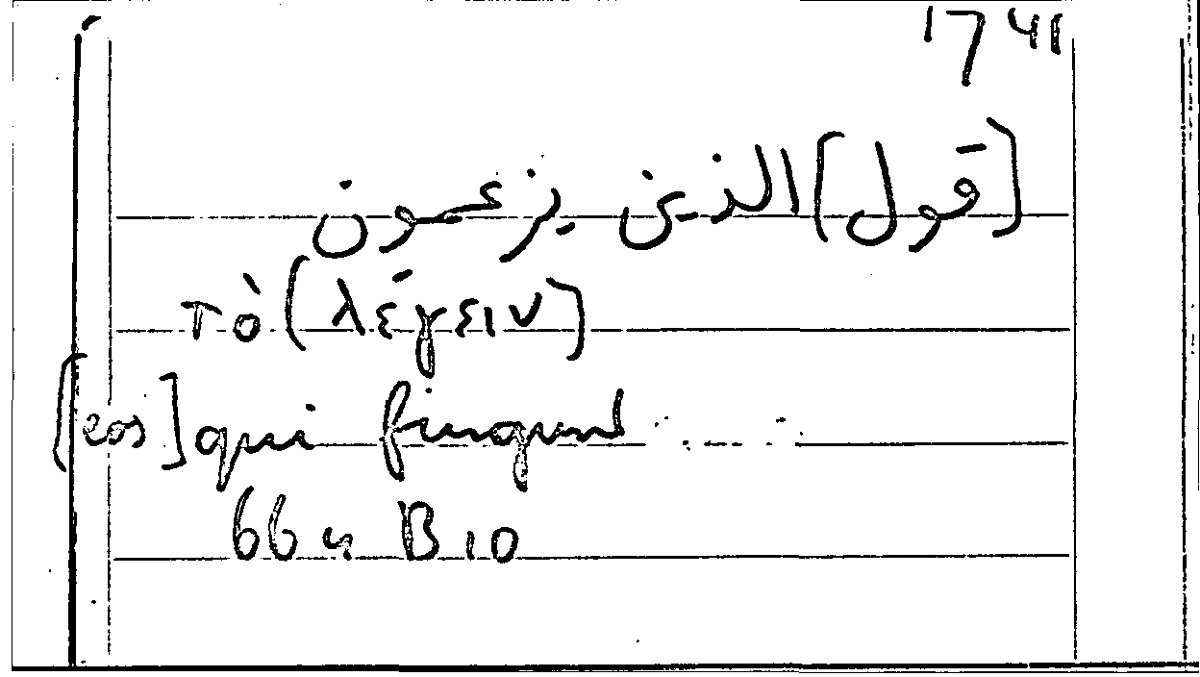 1741
[قول] الذين يزعمون
τὸ [λέγειν]
[eos] qui fingunt
664 B 10